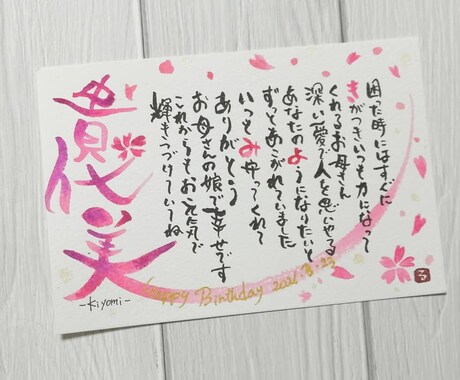 困た時にはすぐに
きがつきいつも力になって
くれるお母さん
深い愛で人を思いやる
あなたのようになりたいと
ずっとあこがれていました
いつもみ守ってくれて
ありがとう
お母さんの娘で幸せです
これからもお元気で
輝きつづけていてね
貴代美
-Kiyomi-
Happy Birthday
る